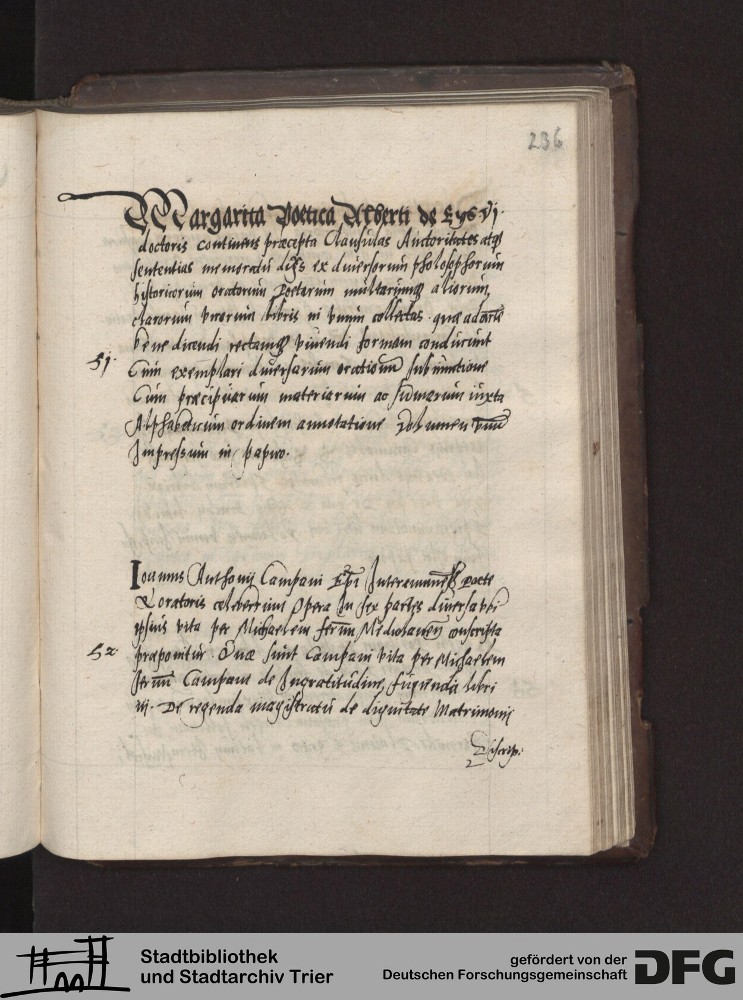 236
Margarita Poetica Alberti de Eyb Vj.
doctoris continens præcepta Clausulas Auctoritates atqꝫ
sententias memoratu dignas ex diuersorum pholosophorum
historicorum oratorum Poetarum multarumqꝫ aliorum
clarorum virorum libris in vnum collectas. quæ ad artē
bene dicendi rectamqꝫ viuendi formam conducunt
51.
Cum exemplari diuersarum orationū submintione
Cum præcipuarum materiarum ac sūmarum iuxta
Alphabeticum ordinem annotatione Volumen vnū
Impressum in papiro.
Ioannis Anthonij Campani Epī Interamnens Poete
& oratoris celeberrimi Opera In sex partes diuersa vbi
ipsius vita per Michaelem fernū Mediolanen̄ conscripta
52
præponitur. Quæ sunt Campani vita per Michaelem
fernū Campani de Ingratitudine fugienda libri
iij. De regenda magistratu de dignitate Matrimonij
Discrip:
Stadtbibliothek
und Stadtarchiv Trier
gefördert von der
Deutschen Forschungsgemeinschaft
DFG